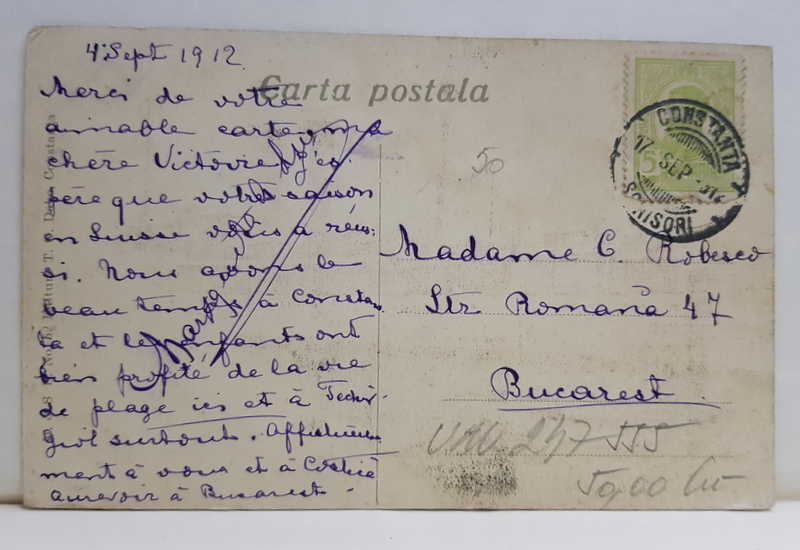 4 Sept 1912
Carta postala
Merci de votre
aimable carte ma
chère Victoire. J'es-
père que votre saison
en Suisse vous a réus-
si. Nous avons le
beau temps à Constan
ta et les enfants ont
bien profité de la vie
de plage ici et à Techir-
giol surtout. Affectueuse
ment à vous et à Costică
aurevoir à Bucarest -
50
CONSTANTA
17 SEP 912
SCRISORI
5
Madame C. Robesco
Str Romană 47
Bucarest
247 555
5900 lei